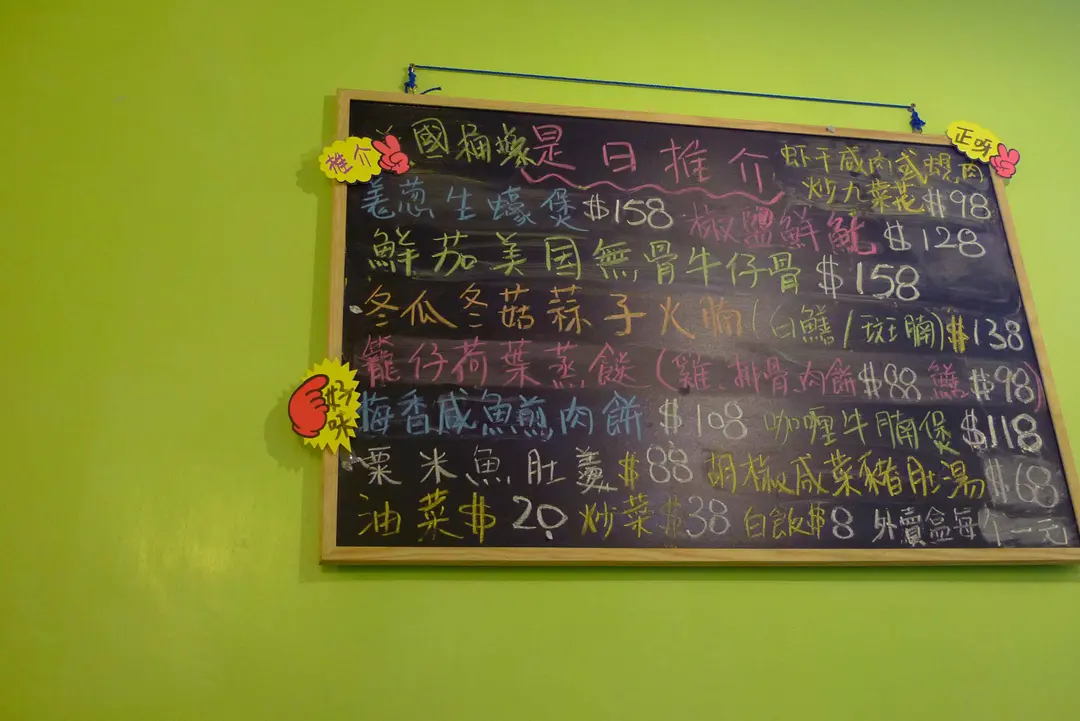 推介
是日推介
正呀
虾干咸肉或蜆肉
炒九菜花$98
羗葱生蠔煲$158
椒鹽鮮魷$128
鮮茄美國無骨牛仔骨$158
冬瓜冬菇蒜子火腩(白鱔/斑腩)$138
籠仔荷葉蒸餸(雞、排骨、肉餅$88 鱔$98)
好味
梅香咸魚煎肉餅$108 咖喱牛腩煲$118
粟米魚肚羹$88 胡椒咸菜豬肚湯$68
油菜$20 炒菜$38 白飯$8 外賣盒每个一元